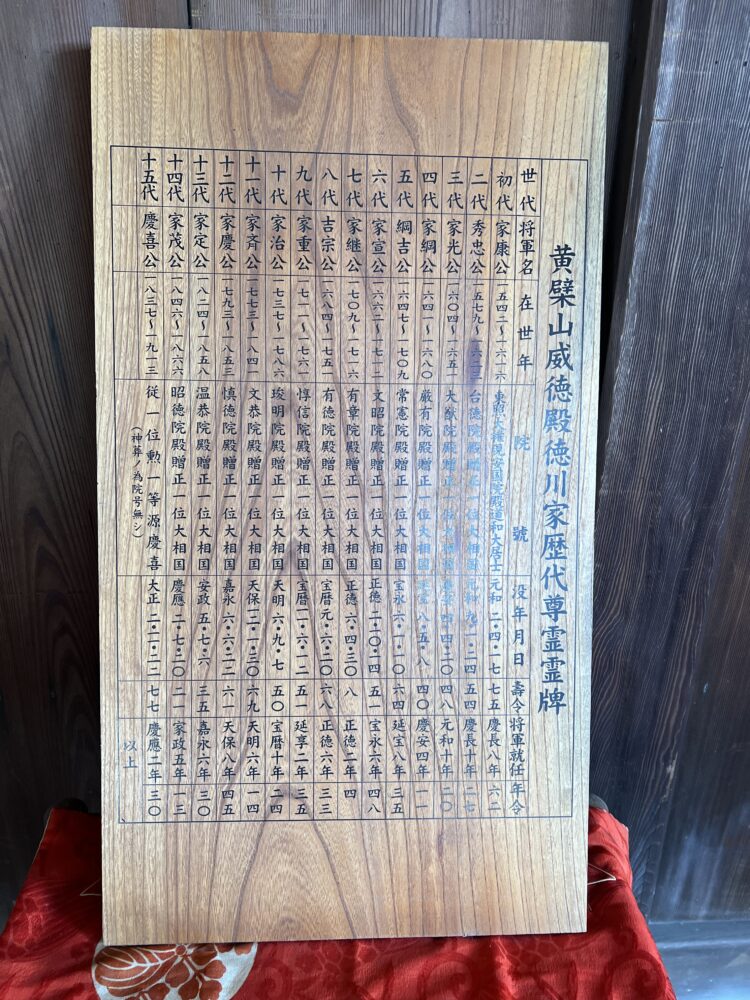 黄檗山威徳殿徳川家歴代尊霊霊牌
世代 将軍名 在世年 院號 没年月日 壽令 将軍就任 年令
初代 家康公 一五四二〜一六一六 東照大権現安国院殿道和大居士 元和 二・四・一七 七五 慶長八年 六二
二代 秀忠公 一五七九〜一六三二 台徳院殿贈正一位大相国 一・二四 五四 慶長十年 二七
三代 家光公 一六〇四〜一六五一 大猷院殿贈正一位大相国 四・二〇 四八 元和十年 二〇
四代 家綱公 一六四一〜一六八〇 厳有院殿贈正一位大相国 八五・八 四〇 慶安四年 一一
五代 綱吉公 一六四七〜一七〇九 常憲院殿贈正一位大相国 宝永 六・一・一〇 六四 延宝八年 三五
六代 家宣公 一六六二〜一七一二 文昭院殿贈正一位大相国 正徳 二・一〇・四 五一 宝永六年 四八
七代 家継公 一七〇九〜一七一六 有章院殿贈正一位大相国 正徳 六・四・三〇 八 正徳二年 四
八代 吉宗公 一六八四〜一七五一 有徳院殿贈正一位大相国 宝暦 元・六・二〇 六八 正徳六年 三三
九代 家重公 一七一一〜一七六一 惇信院殿贈正一位大相国 宝暦 一一・六・一二 五一 延享二年 三五
十代 家治公 一七三七〜一七八六 浚明院殿贈正一位大相国 天明 六・九・七 五〇 宝暦十年 二四
十一代 家斉公 一七七三〜一八四一 文恭院殿贈正一位大相国 天保 一二・一・三〇 六九 天明六年 一四
十二代 家慶公 一七九三〜一八五三 慎徳院殿贈正一位大相国 嘉永 六・六・二二 六一 天保八年 四五
十三代 家定公 一八二四〜一八五八 温恭院殿贈正一位大相国 安政 五・七・六 三五 嘉永六年 三〇
十四代 家茂公 一八四六〜一八六六 昭徳院殿贈正一位大相国 慶應 二・七・二〇 二一 家政五年 一三
十五代 慶喜公 一八三七〜一九一三 従一位勲一等源慶喜 大正 二・一一・二二 七七 慶應二年 三〇
（神葬ノ為院号無シ）
以上